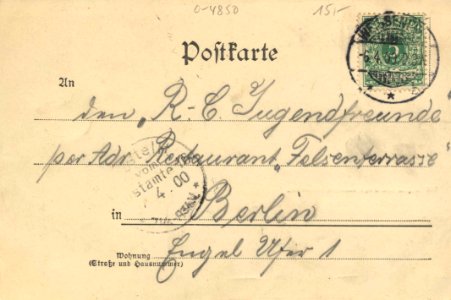 0-4850 15,-
Postkarte
An
den "R-C Jugendfreunde"
per Adr. Restaurant "Felsenterrasse"
4 00
in Berlin
Wohnung
(Straße und Hausnummer)
Engel Ufer 1